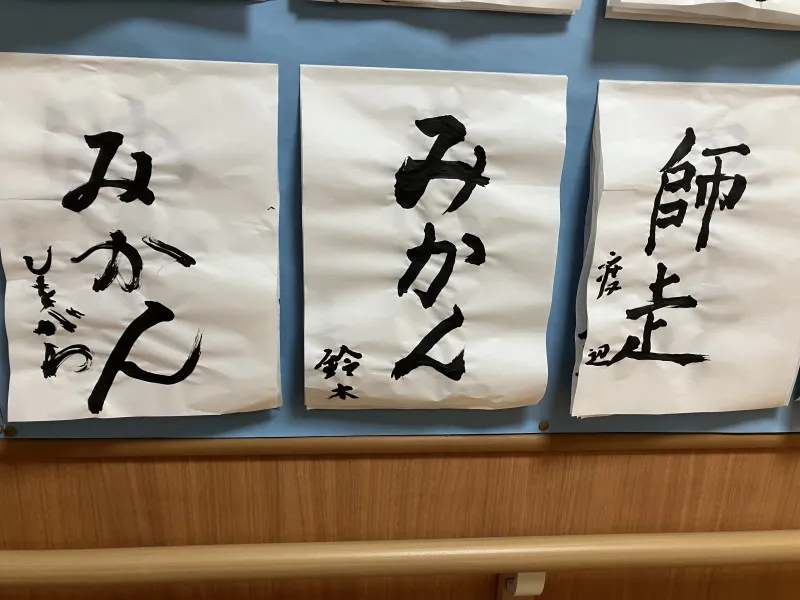 師走
渡辺
みかん
鈴木
みかん
しまがわ